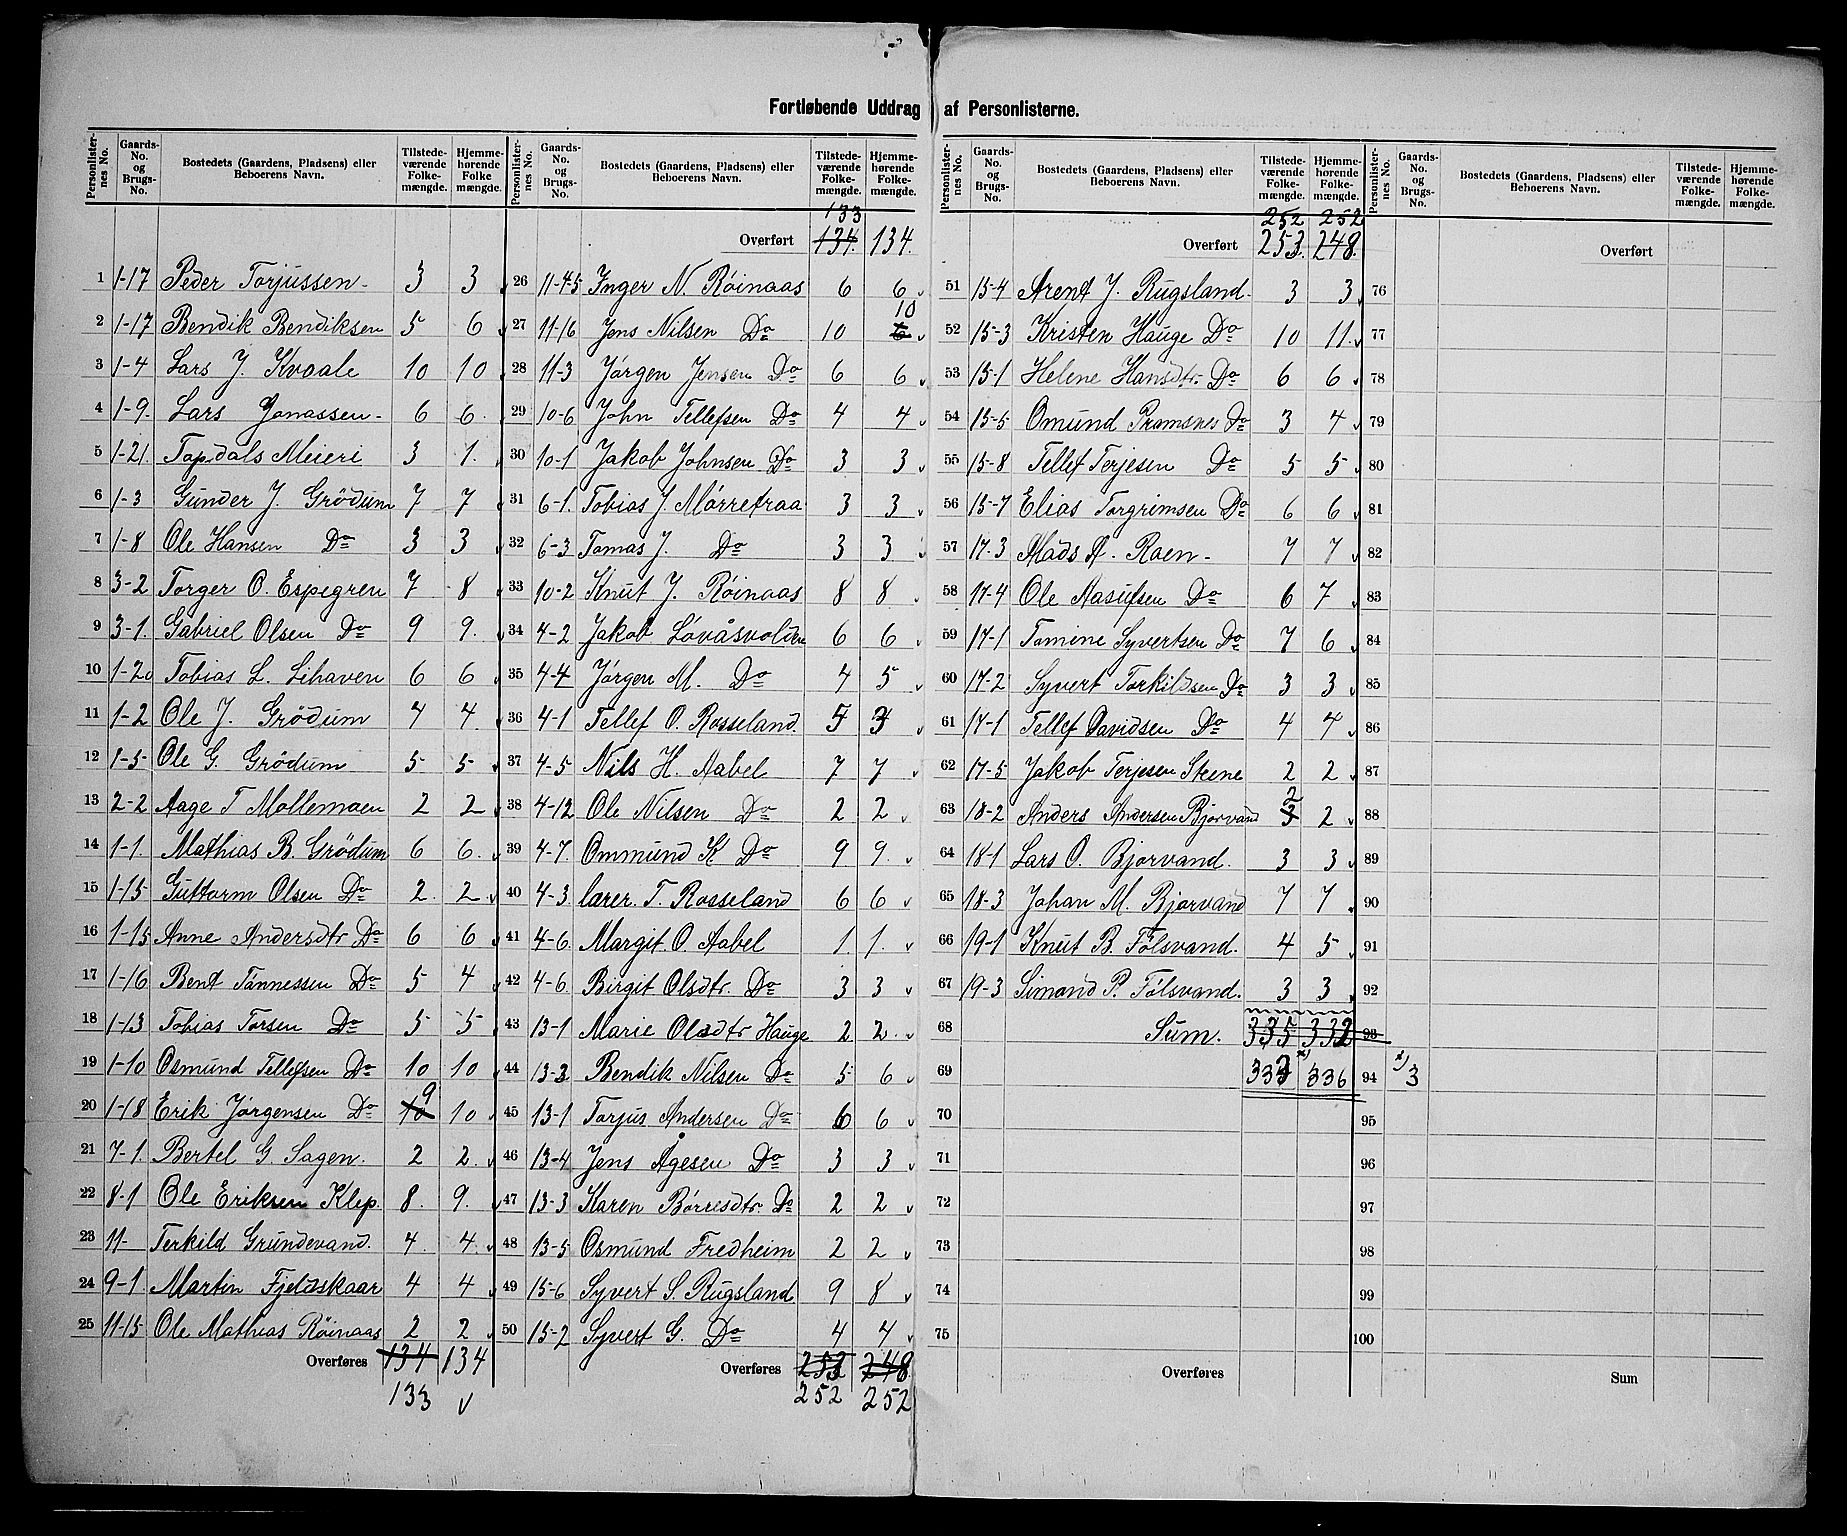 Fortløbende Uddrag af Personlisterne.
Personlisternes No. Gaards-No. og Brugs-No. Bostedets (Gaardens, Pladsens) eller Beboerens Navn. Tilstedeværende Folkemængde. Hjemmehørende Folkemængde.
1 1-17 Peder Torjussen 3 3
2 1-17 Bendik Bendiksen 5 6
3 1-4 Lars J. Kvaale 10 10
4 1-9. Lars Jonassen 6 6.
5 1-21. Topdals Meieri 3 1.
6 1-3 Gunder J. Grödum 7 7
7 1-8 Ole Hansen Do 3 3
8 3-2 Torger O. Espegren 7 8
9 3-1. Gabriel Olsen Do 9 9.
10 1-20 Tobias L. Lihaven 6 6
11 1-2 Ole J. Grödum 4 4.
12 1-5 Ole G. Grödum 5 5
13 2-2 Aage T Mollemoen 2 2
14 1-1. Mathias B. Grödum 6 6.
15 1-15 Guttorm Olsen Do 2. 2.
16 1-15 Anne Andersdtr Do 6 6
17 1-16 Bent Tønnessen Do 5 4
18 1-13 Tobias Torsen Do 5 5
19 1-10 Osmund Tellefsen Do 10 10
20 1-18 Erik Jørgensen Do 10 9 10
21 7-1. Bertel G. Sagen. 2 2.
22 8-1 Ole Eriksen Klep. 8. 9.
23 11- Terkild Grundevand. 4. 4.
24 9-1 Martin Fjeldskaar 4 4
25 11-15 Ole Mathias Röinaas 2 2
Overføres 134 134
133 v
Personlisternes No. Gaards-No. og Brugs-No. Bostedets (Gaardens, Pladsens) eller Beboerens Navn. Tilstedeværende Folkemængde. Hjemmehørende Folkemængde.
133
Overført 134. 134.
26 11-45 Inger N. Röinaas 6 6
27 11-16 Jens Nilsen Do 10 6 10
28 11-3 Jörgen Jensen Do 6 6
29 10-6 John Tellefsen Do 4 4
30 10-1 Jakob Johnsen Do 3 3
31 6-1. Tobias J. Mörretraa 3 3
32 6-3 Tomas J. Do 3 3
33 10-2 Knut J. Röinaas 8 8
34 4-2 Jakob Lövåsvolden 6 6
35 4-4 Jörgen M. Do 4 5
36 4-1 Tellef O. Rosseland. 5 3
37 4-5 Nils H. Aabel 7 7
38 4-12 Ole Nilsen Do 2 2
39 4-7. Ommund K Do 9 9.
40 4-3 lærer. T. Rosseland 6 6
41 4-6. Margit O. Aabel 1. 1.
42 4-6. Birgit Olsdtr. Do 3 3
43 13-1 Marie Olsdtr Hauge 2 2.
44 13-2 Bendik Nilsen Do 5 6
45 13-1 Torjus Andersen Do 6 6
46 13-4 Jens Ågesen Do 3 3
47 13-3 Karen Börresdtr. Do 2 2
48 13-5 Osmund Fredheim 2 2
49 15-6 Syvert S. Rugsland 9 8
50 15-2 Syvert G. Do 4 4
Overføres 253 248
252 252
Personlisternes No. Gaards-No. og Brugs-No. Bostedets (Gaardens, Pladsens) eller Beboerens Navn. Tilstedeværende Folkemængde. Hjemmehørende Folkemængde.
252 252
Overført 253. 248.
51 15-4 Arent J. Rugsland. 3 3
52 15-3 Kristen Hauge Do 10 11.
53 15-1 Helene Hansdtr. Do 6 6
54 15-5 Omund Pramsnes Do 3 4
55 15-8 Tellef Terjesen Do 5 5
56 15-7 Elias Torgrimsen Do 6 6
57 17.3 Mads A. Roen 7 7
58 17-4 Ole Aasufsen Do 6 7
59 17-1 Tomine Syvertsen Do 7 6
60 17-2 Syvert Torkildsen Do 3 3
61 17-1 Tellef Davidsen Do 4 4
62 17-5 Jakob Terjesen Steene 2 2
63 18-2 Anders Andersen Bjorvand 3 2 2
64 18-1 Lars O. Bjorvand. 3 3
65 18-3 Johan M. Bjorvand 7 7
66 19-1 Knut B. Fölsvand. 4 5
67 19-3 Simond P. Fölsvand. 3 3
68 Sum. 335 332
69 333 x) 336
70
71
72
73
74
75
Overføres
Personlisternes No. Gaards-No. og Brugs-No. Bostedets (Gaardens, Pladsens) eller Beboerens Navn. Tilstedeværende Folkemængde. Hjemmehørende Folkemængde.
Overført
76
77
78
79
80
81
82
83
84
85
86
87
88
89
90
91
92
93
94 x) 3
95
96
97
98
99
100
Sum